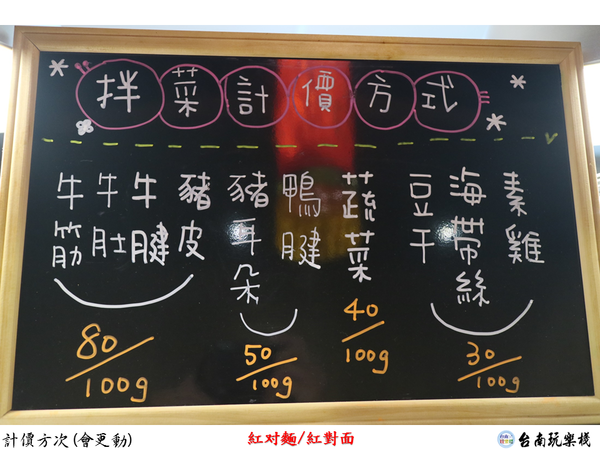 拌菜計價方式
牛筋
牛肚
牛腱
豬皮
80/100g
豬耳朵
鴨腱
50/100g
蔬菜
40/100g
豆干
海帶絲
素雞
30/100g
計價方次(會更動)
紅对麵/紅對面
台南玩樂棧